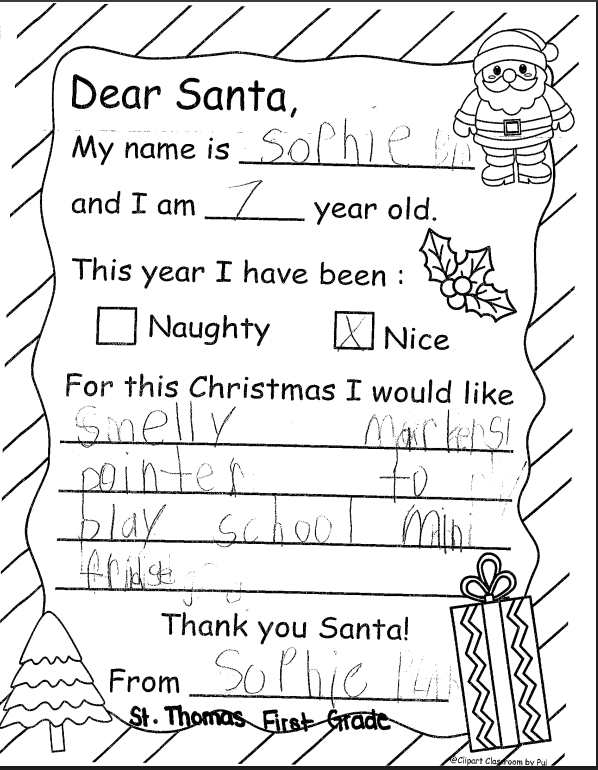 Dear Santa,
My name is Sophie
and I am 7 year old.
This year I have been :
Naughty X Nice
For this Christmas I would like
smelly markers
pointer to
play school mini
fridge
Thank you Santa!
From Sophie
St. Thomas First Grade
@Clipart Classroom by Pui